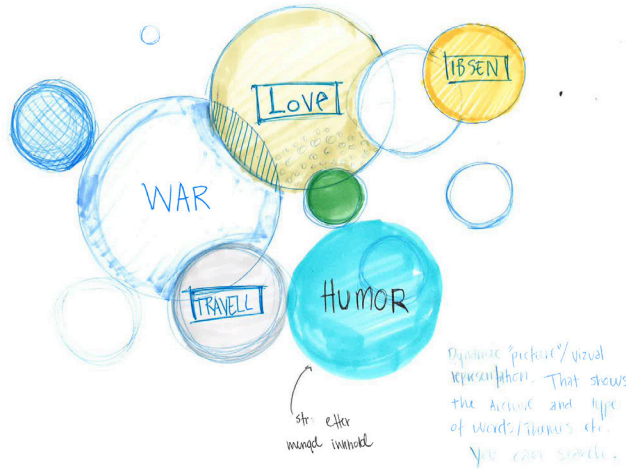 Love
IBSEN
WAR
TRAVELL
HUMOR
str. etter
mengd innhold
Dynamic "picture"/vizual
representation. That shows
the Archive and type
of words/themes etc.
You can search.